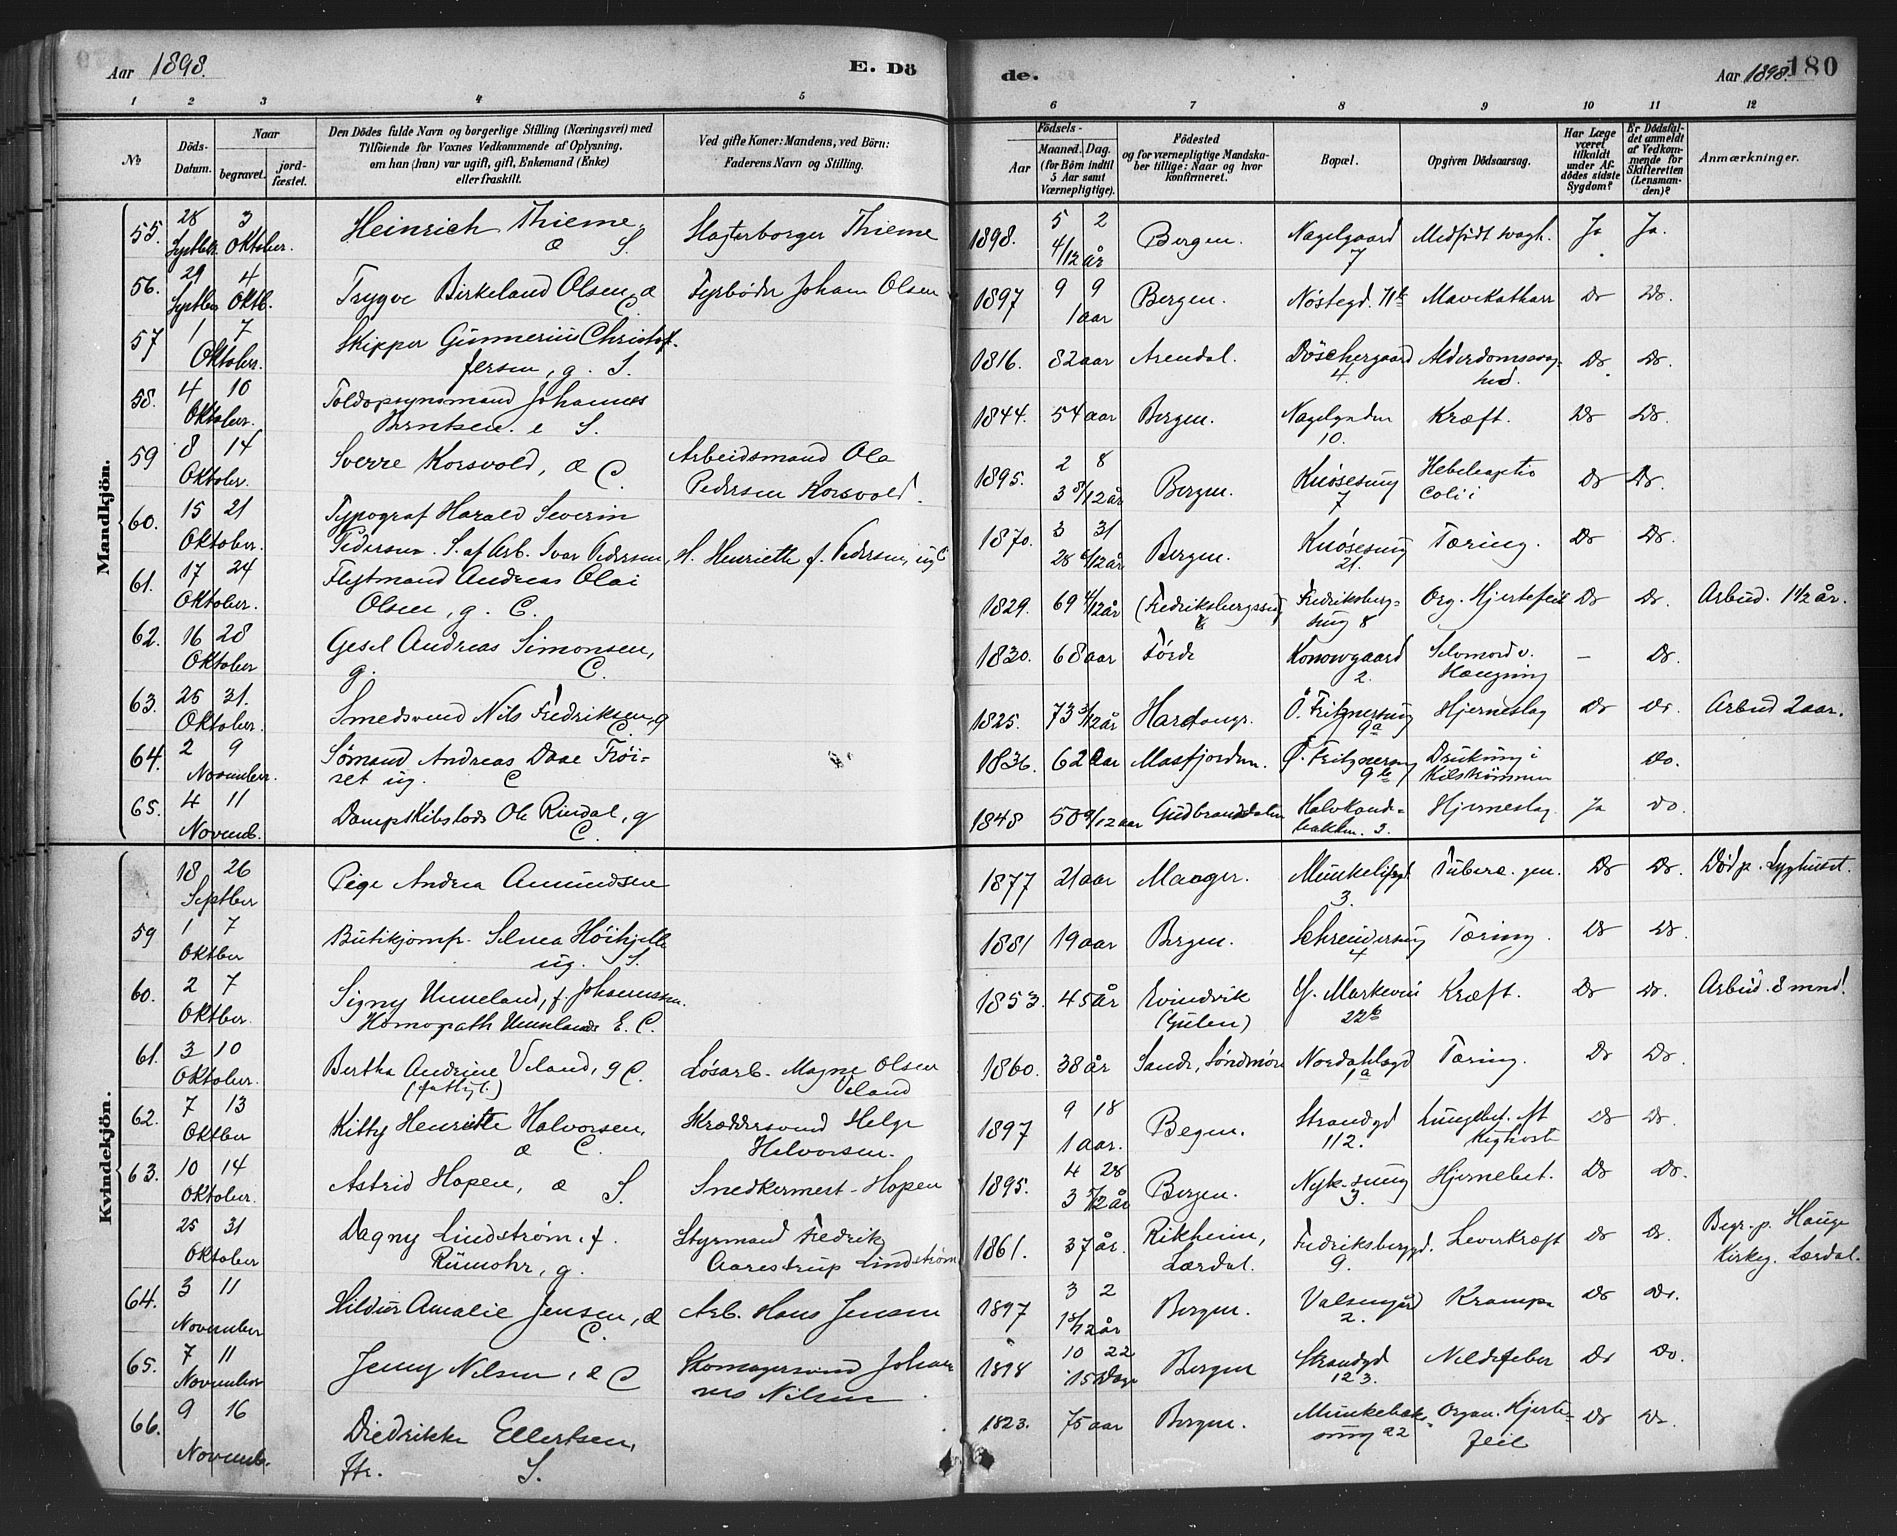 Aar 1898. E. Dö de. Aar 1898. 180
1 2 3 4 5 6 7 8 9 10 11 12
No
Döds-
Datum.
Naar
begravet.
jord-
fæstet.
Den Dödes fulde Navn og borgerlige Stilling (Næringsvei) med
Tilföiende for Voxnes Vedkommende af Oplysning,
om han (hun) var ugift, gift, Enkemand (Enke)
eller fraskilt.
Ved gifte Koner: Mandens, ved Börn:
Faderens Navn og Stilling.
Födsels-
Aar
Maaned. Dag.
(for Börn indtil
5 Aar samt
Værnepligtige).
Födested
og for værnepligtige Mandska-
ber tillige: Naar og hvor
konfirmeret.
Bopæl.
Opgiven Dödsaarsag.
Har Læge
været
tilkaldt
under Af-
dödes sidste
Sygdom?
Er Dödsfal-
det anmeldt
af Vedkom-
mende for
Skifteretten
(Lensman-
den)?
Anmærkninger.
Mandkjön.
55. 28 3 Heinrich Thieme, Thieme 1898. 5 2 Bergen. Nagelgaard Medfödt svagh. Ja Ja.
Septber. Oktober. æ S. 4/12 år 7
56. 29 4 Trygve Birkeland Olsen æ Fyrböder Johan Olsen 1897 9 9 Bergen. Nöstegd. Mavekatharr Do Do.
Septber Oktb. C 1 aar
57 1 7 Skipper Gunnerius Christof- 1816. 82 aar Arendal. Döschergaard Alderdomssvag- Do Do.
Oktober. fersen, g. S. 4. hed.
58. 4 10 Toldopsynsmand Johannes 1844. 54 aar Bergen. Kræft. Do Do.
Oktober. Berntsen. e S. 10.
59 8 14 Sverre Korsvold, æ C. Arbeidsmand Ole 1895. 2 8 Bergen. Knösesmug Do Do.
Oktober. Pedersen Korsvold. 3 8/12 år 7 Coli
60. 15 21 Typograf Harald Severin 1870. 3 31 Bergen. Knösesmug Tæring. Do Do.
Oktober. Pedersen. S. af Arb. Ivar Pedersen, H. Henriette f. Pedersen, ug C 28 6/12 år 21.
61. 17 24 Flytmand Andreas Olai 1829. 69 4/12 år (Fredriksbergssmug Fredriksberg- Org. Hjertefeil Do Do. Arbud. 1 1/2 år.
Oktober. Olsen, g. C. smug 8
62. 16 28 Gesel Andreas Simonsen, 1830. 68 aar Förde Konowgaard Selvmord v. — Do.
Oktober g. C. 2. Hængning
63. 25 31. Smedsvend Nils Fredriksen, g 1825. 73 3/12 år Hardangr. Ö. Fritznersmug Hjerneslag Do Do. Arbud 2 aar.
Oktober. C. 9a
64. 2 9 Sömand Andreas Daae Fröi- 1836. 62 aar Masfjorden. Ö. Fritznersmug Drukning i Do.
November. set ug. C 9b Kilströmmen
65. 4 11 Ole Rindal, g 1848 50 /12 aar Gudbrandsdalen Halvkand- Hjerneslag Ja Do.
Novemb. C. bakken. 3.
Kvindekjön.
18 26 Pige Andrea Amundsen 1877 21 aar Manger. Munkelivgd. Tuberc. gen. Do Do. Död p. Syghuset.
Septber 3.
59 1 7 Butikjomfr. Selma Höihjelle 1881 19 aar Bergen. Schreudersmug Tæring. Do Do.
Oktber ug. S. 4
60. 2 7 Signy Unneland, f Johannessen. 1853. 45 år Evindvik Markevei Kræft. Do Do. Arbud. 8 mnd.
Oktber. Homopath Unnelands E. C. (Gulen) 22b
61. 3 10 Bertha Andrine Veland, g C. Lösarb. Magne Olsen 1860. 38 år Sande, Söndmöre Nordahlsgd Tæring. Do Do.
Oktober. (fattigt.) Veland 1a
62. 7 13 Kitty Henriette Halvorsen, Skræddersvend Helge 1897 9 18 Begen. Strandgd Lungebet. eft. Do Do.
Oktber æ C. Halvorsen. 1 aar. 112. Kighoste
63. 10 14 Astrid Hopen, æ S. Snedkermest. Hopen 1895. 4 28 Bergen. Nyk-smug Hjernebet. Do Do.
Oktober. 3 5/12 år 3.
25 31 Dagny Lindström, f. Styrmand Fredrik 1861. 37 år. Rikheim, Fredriksberggd. Leverkræft Do Do. Begr. p. Hauge
Oktober Rumohr, g. Aarestrup Lindström Lærdal. 9. Kirkeg. Lærdal.
64. 3 11 Hildur Amalie Jensen, æ Arb. Hans Jensen 1897 3 2 Bergen. Krampe Do Do.
November C. 1 8/12 år 2.
65. 7 11 Jenny Nilsen, æ C Skomagersvend Johan- 1898 10 22 Bergen Strandgd Do Do.
November nes Nilsen 15 Dage 123.
66. 9 16 Diedrikke Ellertsen, 1823. 75 aar Bergen. Munkebæk- Organ. Hjerte- Do Do.
Novemb. ftr. S. smug 22 feil